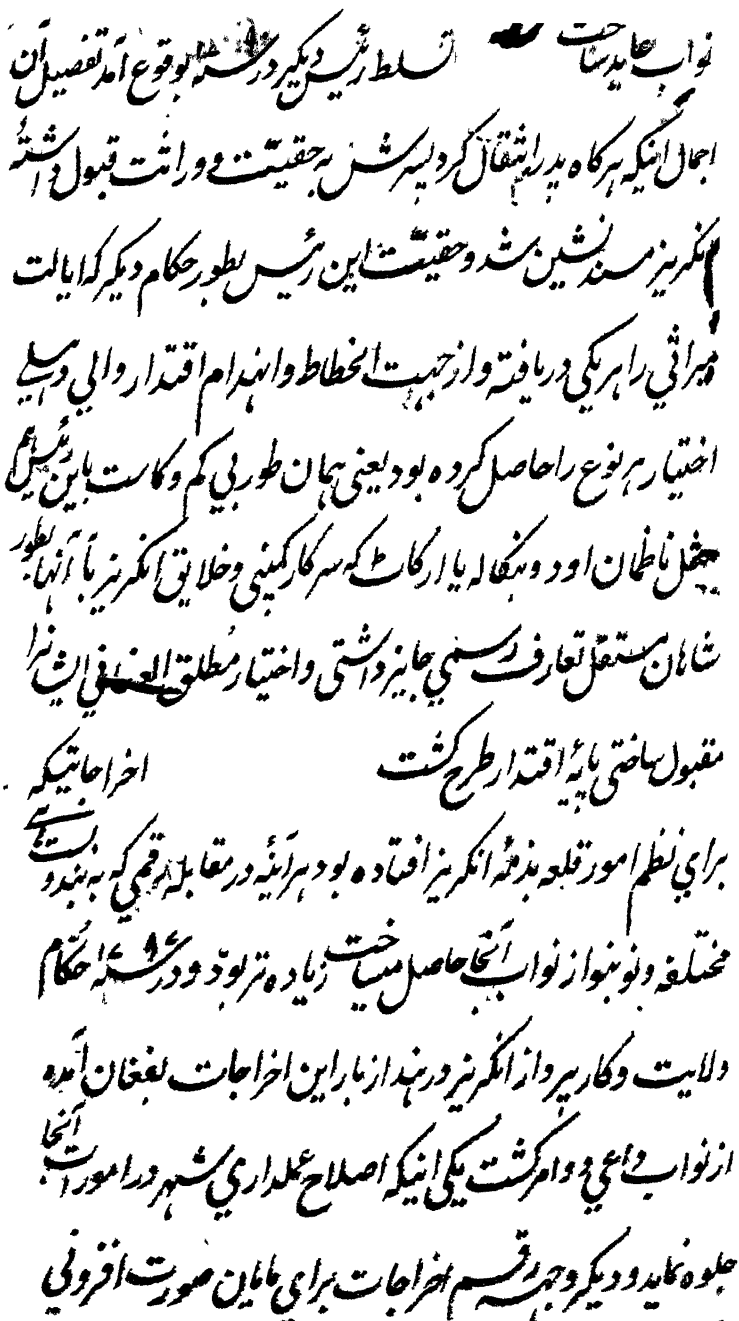 نواب عاید ساخت تسلط رئیس دیگر در سنه بوقوع آمد تفصیل آن
اجمال اینکه هرکاه پدر انتقال کرد پسرش به حقیّت و وراثت قبول داشتهٔ
انگریز مسند نشین شد و حقیّت این رئیس بطور حکام دیگر که ایالت
میراثي را هر یکي دریافته و از جهت انحطاط و انهدام اقتدار والي دهلي
اختیار هر نوع را حاصل کرده بود یعنی همان طور بي کم و کاست باین رئیس هم
مثل ناظمان اود و بنگاله یا ارکات که سرکار کمپني و خلایق انگریز با آنها بطور
شاهان مستقل تعارف رسمي جایز داشتی و اختیار مُطلق في ایشانرا
مقبول ساختی پایهٔ اقتدار طرح گشت اخراجاتیکه
براي نظم امور قلعه بذمهٔ انگریز افتاده بود هرآینه در مقابله رقمي که به بندوبست
مختلفه و نو بنو از نواب آنجا حاصل میساخت زیاده تر بود و در سنه ۱۷۸۷ حکّام
ولایت و کارپرداز انگریز در هند از بار این اخراجات بفغان آمده
از نواب داعي دو امر گشت یکي اینکه اصلاح عملداري شهر در امورات آنجا
جلوه نماید و دیگر وجهه رقم اخراجات براي مایان صورت افزوني